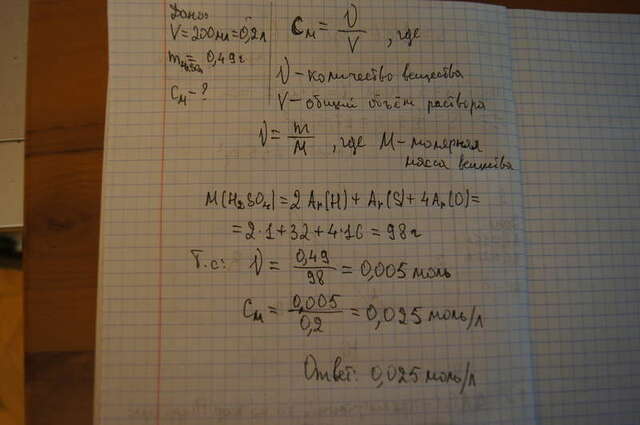 Дано:
V = 200мл = 0,2л
m H₂SO₄ = 0,49г
Cм - ?
Cм = ν/V , где
ν - количество вещества
V - общий объём раствора
ν = m/M , где M - молярная
масса вещества
M(H₂SO₄) = 2Ar(H) + Ar(S) + 4Ar(O) =
= 2·1 + 32 + 4·16 = 98 г
Т.е: ν = 0,49/98 = 0,005 моль
Cм = 0,005/0,2 = 0,025 моль/л
Ответ: 0,025 моль/л